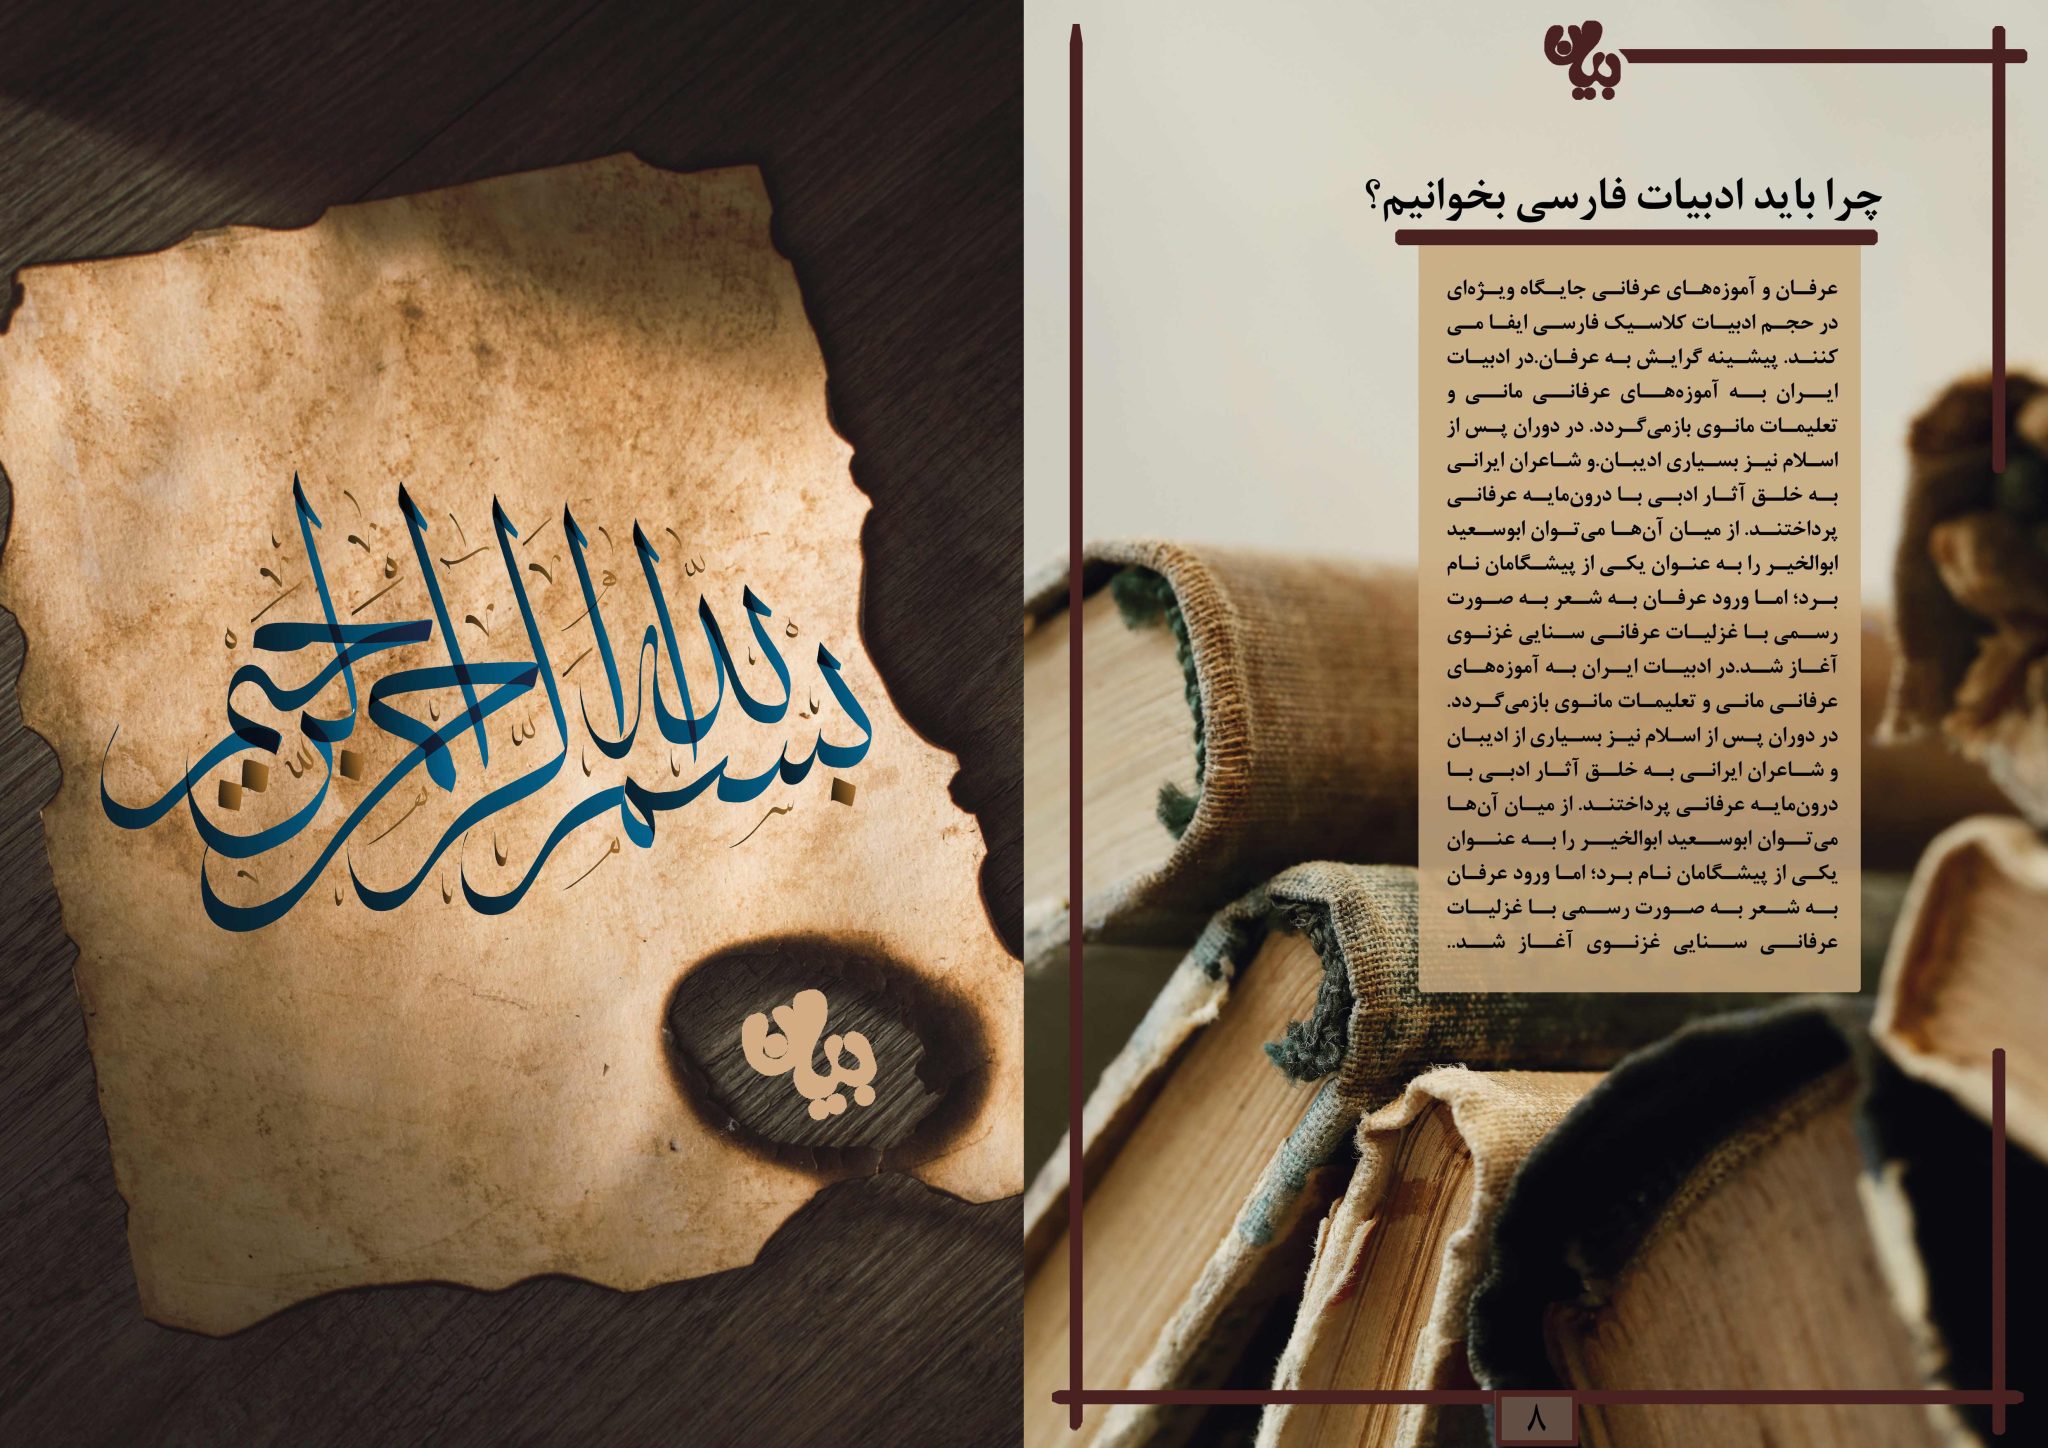 بیان
چرا باید ادبیات فارسی بخوانیم؟
عرفان و آموزه‌های عرفانی جایگاه ویژه‌ای
در حجم ادبیات کلاسیک فارسی ایفا می
کنند. پیشینه گرایش به عرفان.در ادبیات
ایران به آموزه‌های عرفانی مانی و
تعلیمات مانوی بازمی‌گردد. در دوران پس از
اسلام نیز بسیاری ادیبان.و شاعران ایرانی
به خلق آثار ادبی با درون‌مایه عرفانی
پرداختند. از میان آن‌ها می‌توان ابوسعید
ابوالخیر را به عنوان یکی از پیشگامان نام
برد؛ اما ورود عرفان به شعر به صورت
رسمی با غزلیات عرفانی سنایی غزنوی
آغاز شد.در ادبیات ایران به آموزه‌های
عرفانی مانی و تعلیمات مانوی بازمی‌گردد.
در دوران پس از اسلام نیز بسیاری از ادیبان
و شاعران ایرانی به خلق آثار ادبی با
درون‌مایه عرفانی پرداختند. از میان آن‌ها
می‌توان ابوسعید ابوالخیر را به عنوان
یکی از پیشگامان نام برد؛ اما ورود عرفان
به شعر به صورت رسمی با غزلیات
عرفانی سنایی غزنوی آغاز شد..
۸
بسم الله الرحمن الرحیم
بیان